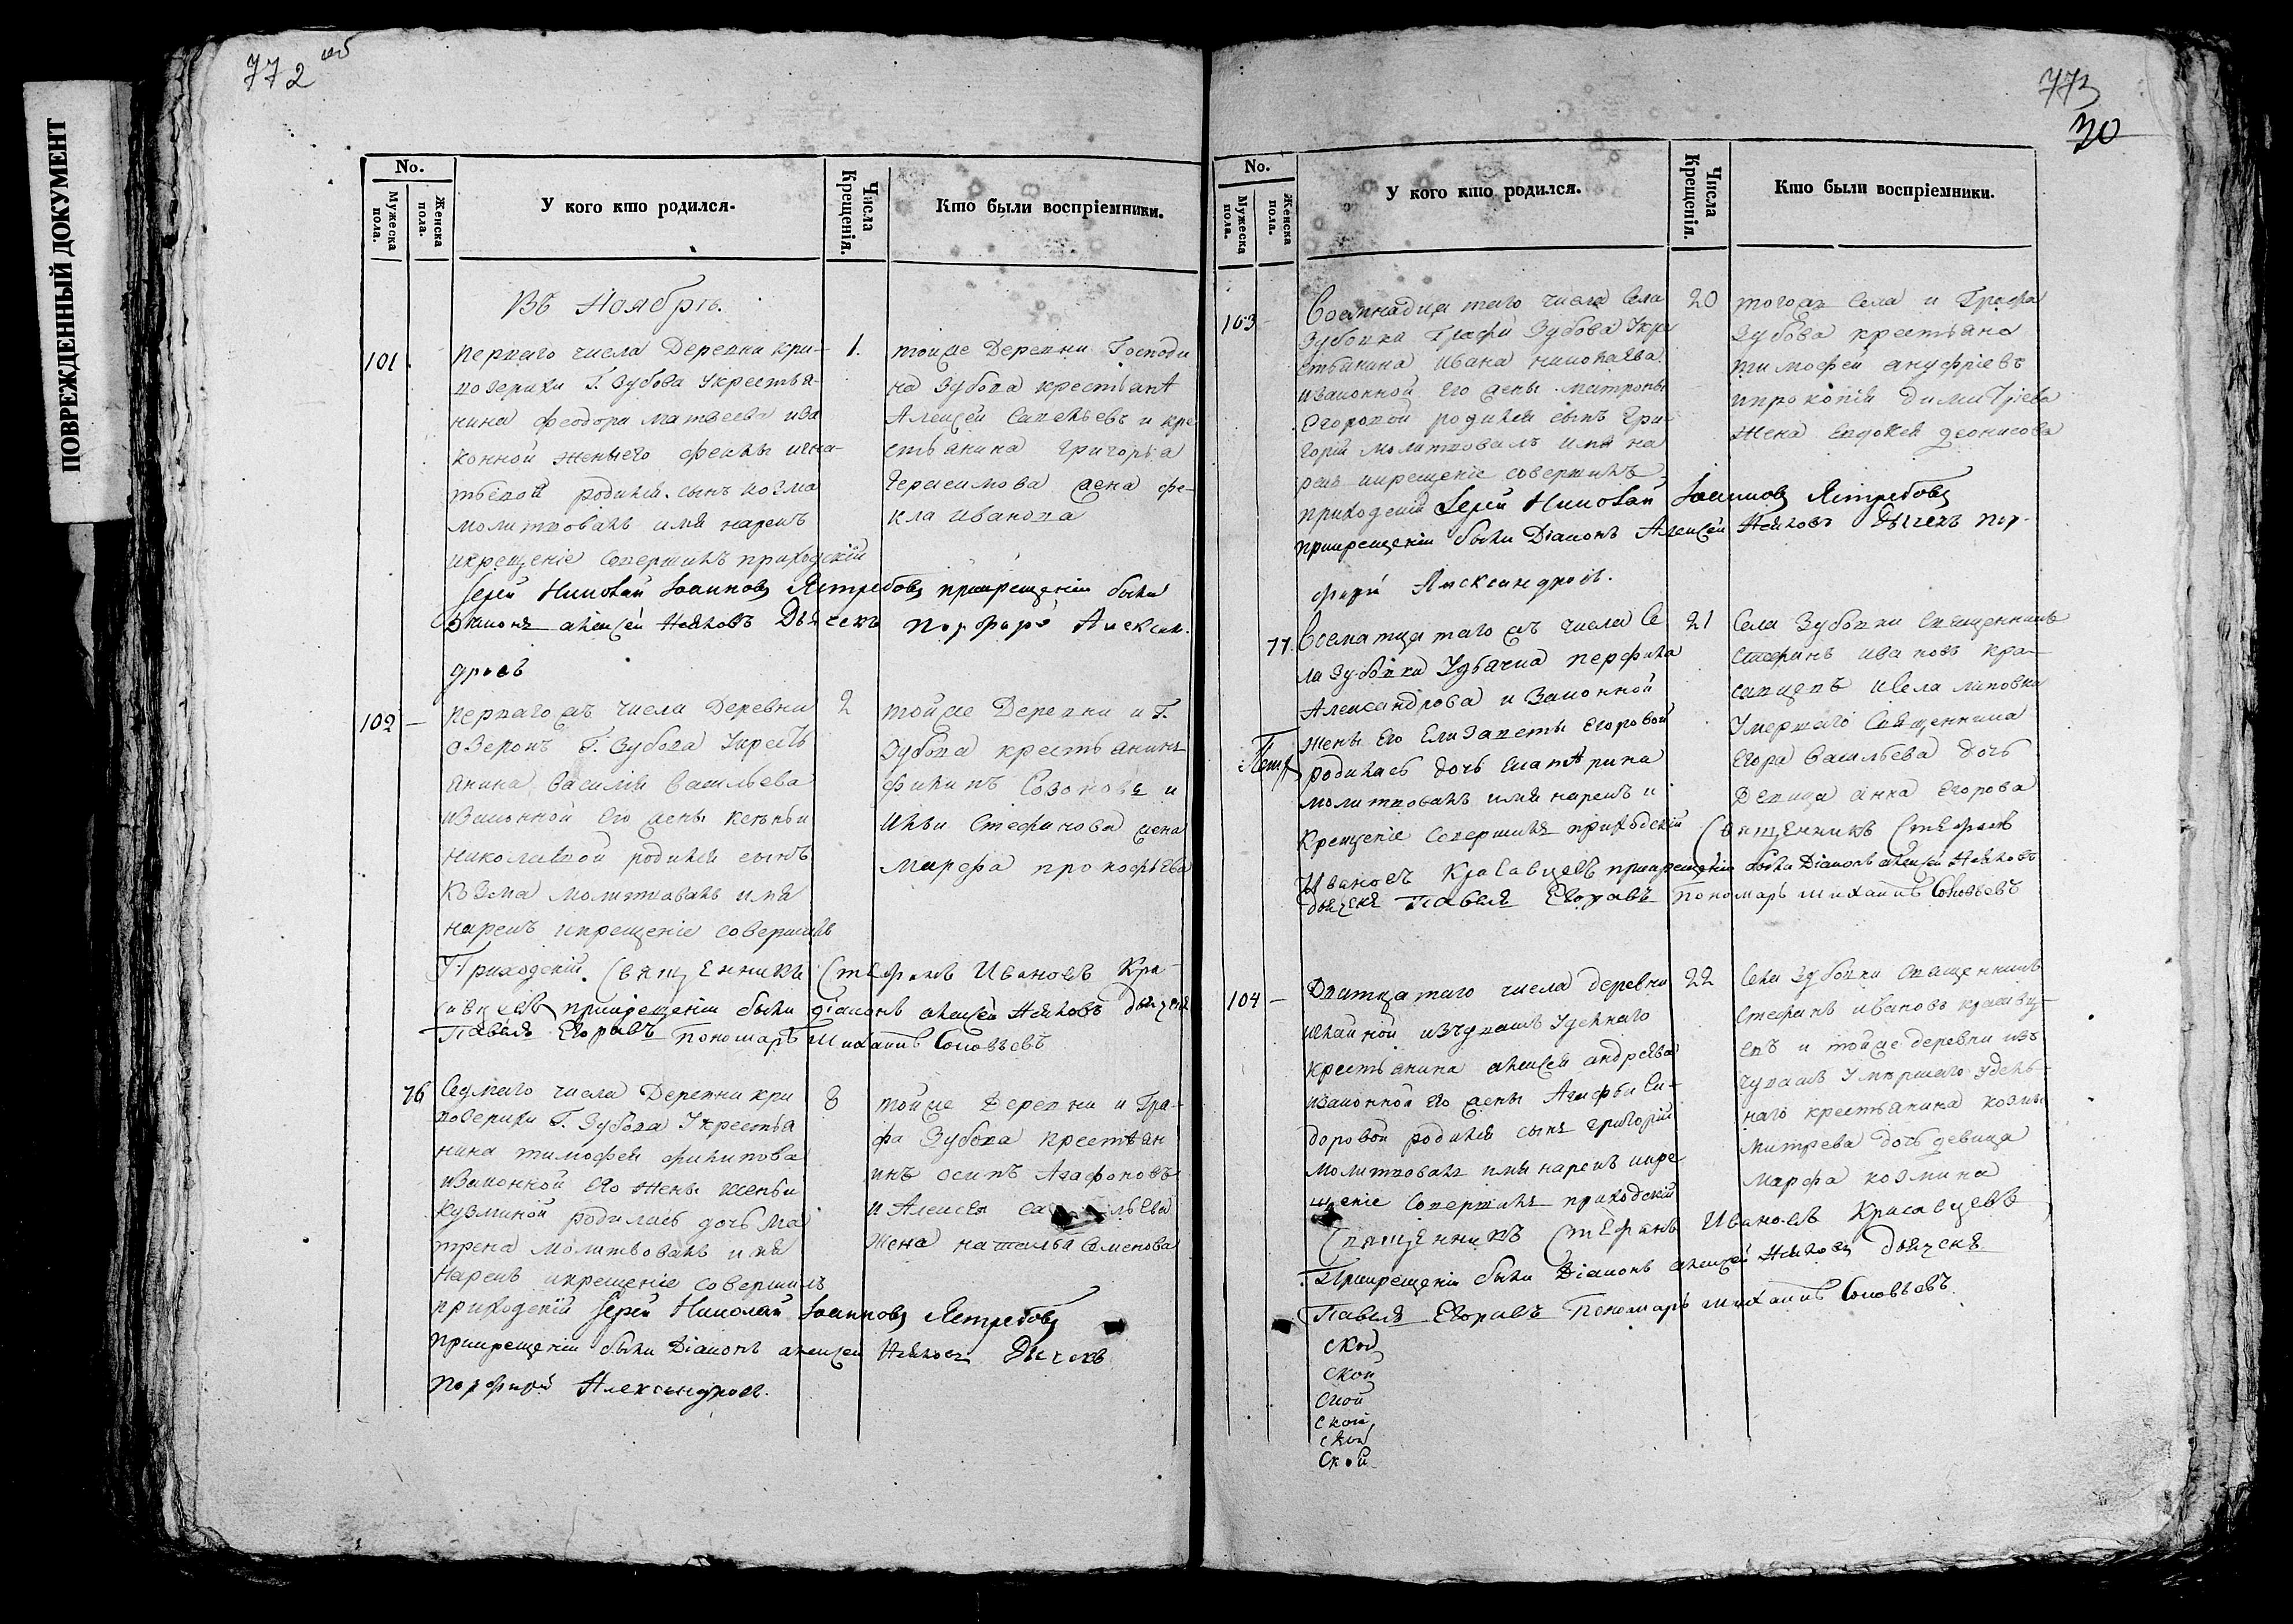 ПОВРЕЖДЕННЫЙ ДОКУМЕНТ
772 об
No.
Мужеска пола.
Женска пола.
У кого кто родился.
Числа Крещенія.
Кто были воспріемники.
Въ Ноябрѣ.
101
Перваго числа Деревни Кри-
возерихи Г. Зубова Укрестья-
нина Феодора Матвеева иза
конной женыего Феклы игна-
тьевой родился сынъ козма
молитвовалъ имя нарекъ
икрещеніе совершилъ приходскій
Іерей Николай Іоанновъ Ястребовъ прикрещеніи были
Діаконъ алексей Нейковъ Дьячекъ Порфирй Алексан-
дровъ
1.
тойже Деревни Господи
на Зубова крестьянА
Алексей Савельевъ и кре
стьянина григорья
Герасимова жена фе-
кла Иванова
102
Перваго жъ числа Деревни
озерокъ Г. Зубова Укресть
янина Василія Васильева
изаконной Его жены ксеньи
николаевой родился сынъ
козма молитвовалъ имя
нарекъ икрещеніе совершилъ
Приходскій Священникъ Стефанъ Ивановъ Кра-
савцевъ прикрещеніи были діаконъ алексей Нейковъ дьячекъ
Павелъ Егоровъ Пономарь Михаилъ Соловьевъ
2
тойже Деревни и Г.
Зубова крестьянинъ
филипъ Созоновъ и
Ильи Стефанова жена
Марфа прокофьева
76
Седмаго числа Деревни кри
возерихи Г. Зубова Укрестья
нина тимофея филипова
изаконной Его жены ксеньи
кузминой родилась дочь Ма
трена молитвовалъ имя
нарекъ икрещеніе совершилъ
приходскій Іерей Николай Іоанновъ Ястребовъ
прикрещеніи были Діаконъ алексей Нейковъ Дьячекъ
порфирй Александровъ.
8
тойже Деревни и Гра-
фа Зубова крестьян
инъ осипъ Агафоновъ
и Алексея
жена наталья Семенова
773
30
No.
Мужеска пола.
Женска пола.
У кого кто родился.
Числа Крещенія.
Кто были воспріемники.
103
Восемнадцатаго числа Села
Зубовки Графа Зубова Укре
стьянина Ивана николаева
изаконной его жены матроны
Егоровой родился сынъ Гри-
горій молитвовалъ имя на
рекъ икрещеніе совершилъ
приходскій Іерей Николай Іоанновъ Ястребовъ
прикрещеніи были Діаконъ Алексей Нейковъ Дьячекъ пор-
фирй Александровъ.
20
тогожъ Села и Графа
Зубова крестьяна
тимофей ануфріевъ
ипрокопія Димитріева
жена Евдокея деонисова
77.
Восматцатаго жъ числа Се
ла Зубовки Удьячка перфила
Александрова и Законной
жены Его Елизаветы Егоровой
родилась дочь екатАрина
молитвовалъ имя нарекъ и
крещеніе совершилъ приходскій Священникъ Стефанъ
Ивановъ Красавцевъ прикрещеніи были Діаконъ алексей Нейковъ
дьячекъ Павелъ Егоровъ пономарь Михаилъ Соловьевъ
21
Села Зубовки Священникъ
Стефанъ ивановъ кра-
савцевъ иСела липовки
Умершаго Священника
Егора васильева дочь
Девица анна Егорова
104
Дватцатаго числа деревни
изъчувашъ Удельнаго
крестьянина алексея андреева
изаконной его жены Агафьи Си-
доровой родился сынъ григорій
молитвовалъ имя нарекъ икре
щеніе совершилъ приходскій
Священникъ Стефанъ Ивановъ Красавцевъ
Прикрещеніи были Діаконъ алексей Нейковъ дьячекъ
Павелъ Егоровъ Пономарь михаилъ Соловьевъ.
22
Села Зубовки Священникъ
Стефанъ ивановъ красавц-
евъ и тойже деревни изъ
чувашъ Умершаго Удель-
наго крестьянина козмы
митрева дочь девица
марфа козмина
ской
ской
ской
ской
ской
ской